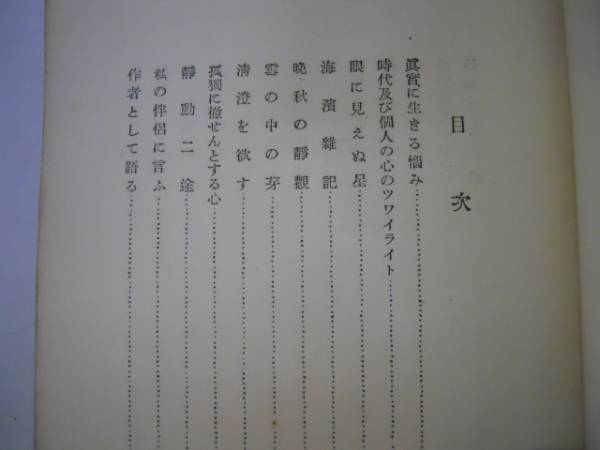 目次
眞實に生きる惱み
時代及び個人の心のツワイライト
眼に見えぬ星
海濱雜記
晩秋の靜觀
雲の中の芽
淸澄を欲す
孤獨に徹せんとする心
靜動二途
私の伴侶に言ふ
作者として語る